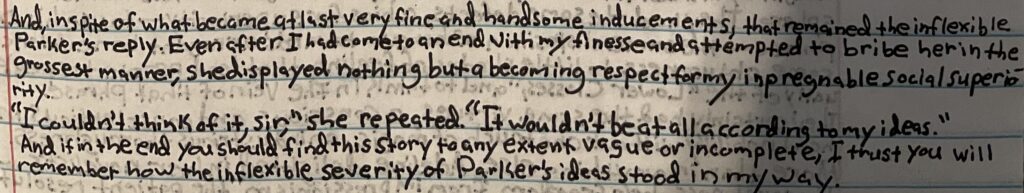 And, inspite of what became at last very fine and handsome inducements, that remained the inflexible
Parker's reply. Even after I had come to an end with my finesse and attempted to bribe her in the
grossest manner, she displayed nothing but a becoming respect for my inpregnable social superio
rity.
"I couldn't think of it, sir," she repeated. "It wouldn't be at all according to my ideas."
And if in the end you should find this story to any extent vague or incomplete, I trust you will
remember how the inflexible severity of Parker's ideas stood in my way.